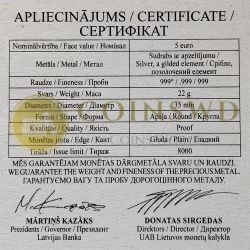 APLIECINĀJUMS / CERTIFICATE /
СЕРТИФІКАТ
Nominālvērtība / Face value / Номінал 5 euro
Metāls / Metal / Метал Sudrabs ar apzeltījumu / Silver, a gilded element / Срібло, позолочений елемент
Raudze / Fineness / Проби 999° / .999 / 999
Svars / Weight / Маса 22 g
Diametrs / Diameter / Діаметр 35 mm
Forma / Shape / Форма Apaļa / Round / Кругла
Kvalitāte / Quality / Якість Proof
Monētas josta / Edge / Кант Gluda / Plain / Гладкий
Tirāža / Issue limit / Тираж 8000
MĒS GARANTĒJAM MONĒTAS DĀRGMETĀLA SVARU UN RAUDZI.
WE GUARANTEE THE WEIGHT AND FINENESS OF THE PRECIOUS METAL.
ГАРАНТУЄМО ВАГУ ТА ПРОБУ ДОРОГОЦІННОГО МЕТАЛУ.
MĀRTIŅŠ KAZĀKS
Prezidents / Governor / Президент
Latvijas Banka
DONATAS SIRGEDAS
Direktors / Director / Директор
UAB Lietuvos monetų kalykla